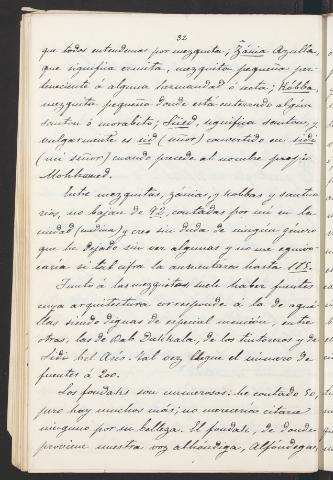 32
que todos entendemos por mezquita; Záuia Azulla,
que significa ermita, mezquita pequeña per-
teneciente á alguna hermandad ó secta; Kobba,
mezquita pequeña donde está enterrado algún
santon ó morabito; Siied, significa santon, y
vulgarmente es sid (señor) convertido en sidi
(mi señor) cuando precede al nombre propio
Mohhamed.
Entre mezquitas, záuias, y kobbas y santua-
rios, no bajan de 92, contadas por mí en la
ciudad (medina) y creo sin duda de ningun género
que he dejado sin ver algunas y no me equivo-
caria si tal cifra la aumentáran hasta 115.
Junto á las mezquitas suele haber fuentes
cuya arquitectura corresponde á la de aque-
llas siendo dignas de especial mención, entre
otras, las de Bab Dukkala, de los tintoreros y de
Sidi bel Abés. Tal vez llegue el número de
fuentes á 200.
Los fondaks son numerosos: he contado 50,
pero hay muchos más; no merecen citarse
ninguno por su belleza. El fondak, de donde
proviene nuestra voz alhóndiga, Alfóndegas,